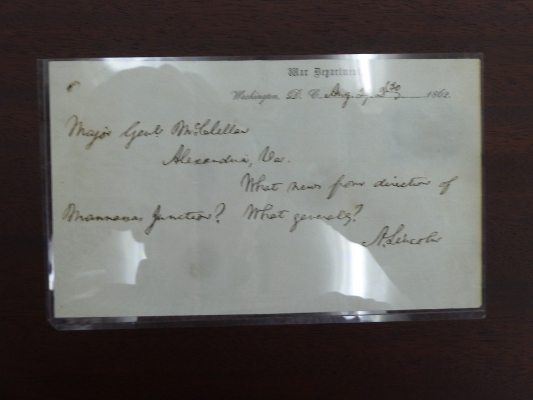 War Department
Washington, D. C. Aug. 29, 2 30 1862.
Major Genl McClellan
Alexandria, Va.
What news from direction of
Mannassas Junction? What generally?
A. Lincoln